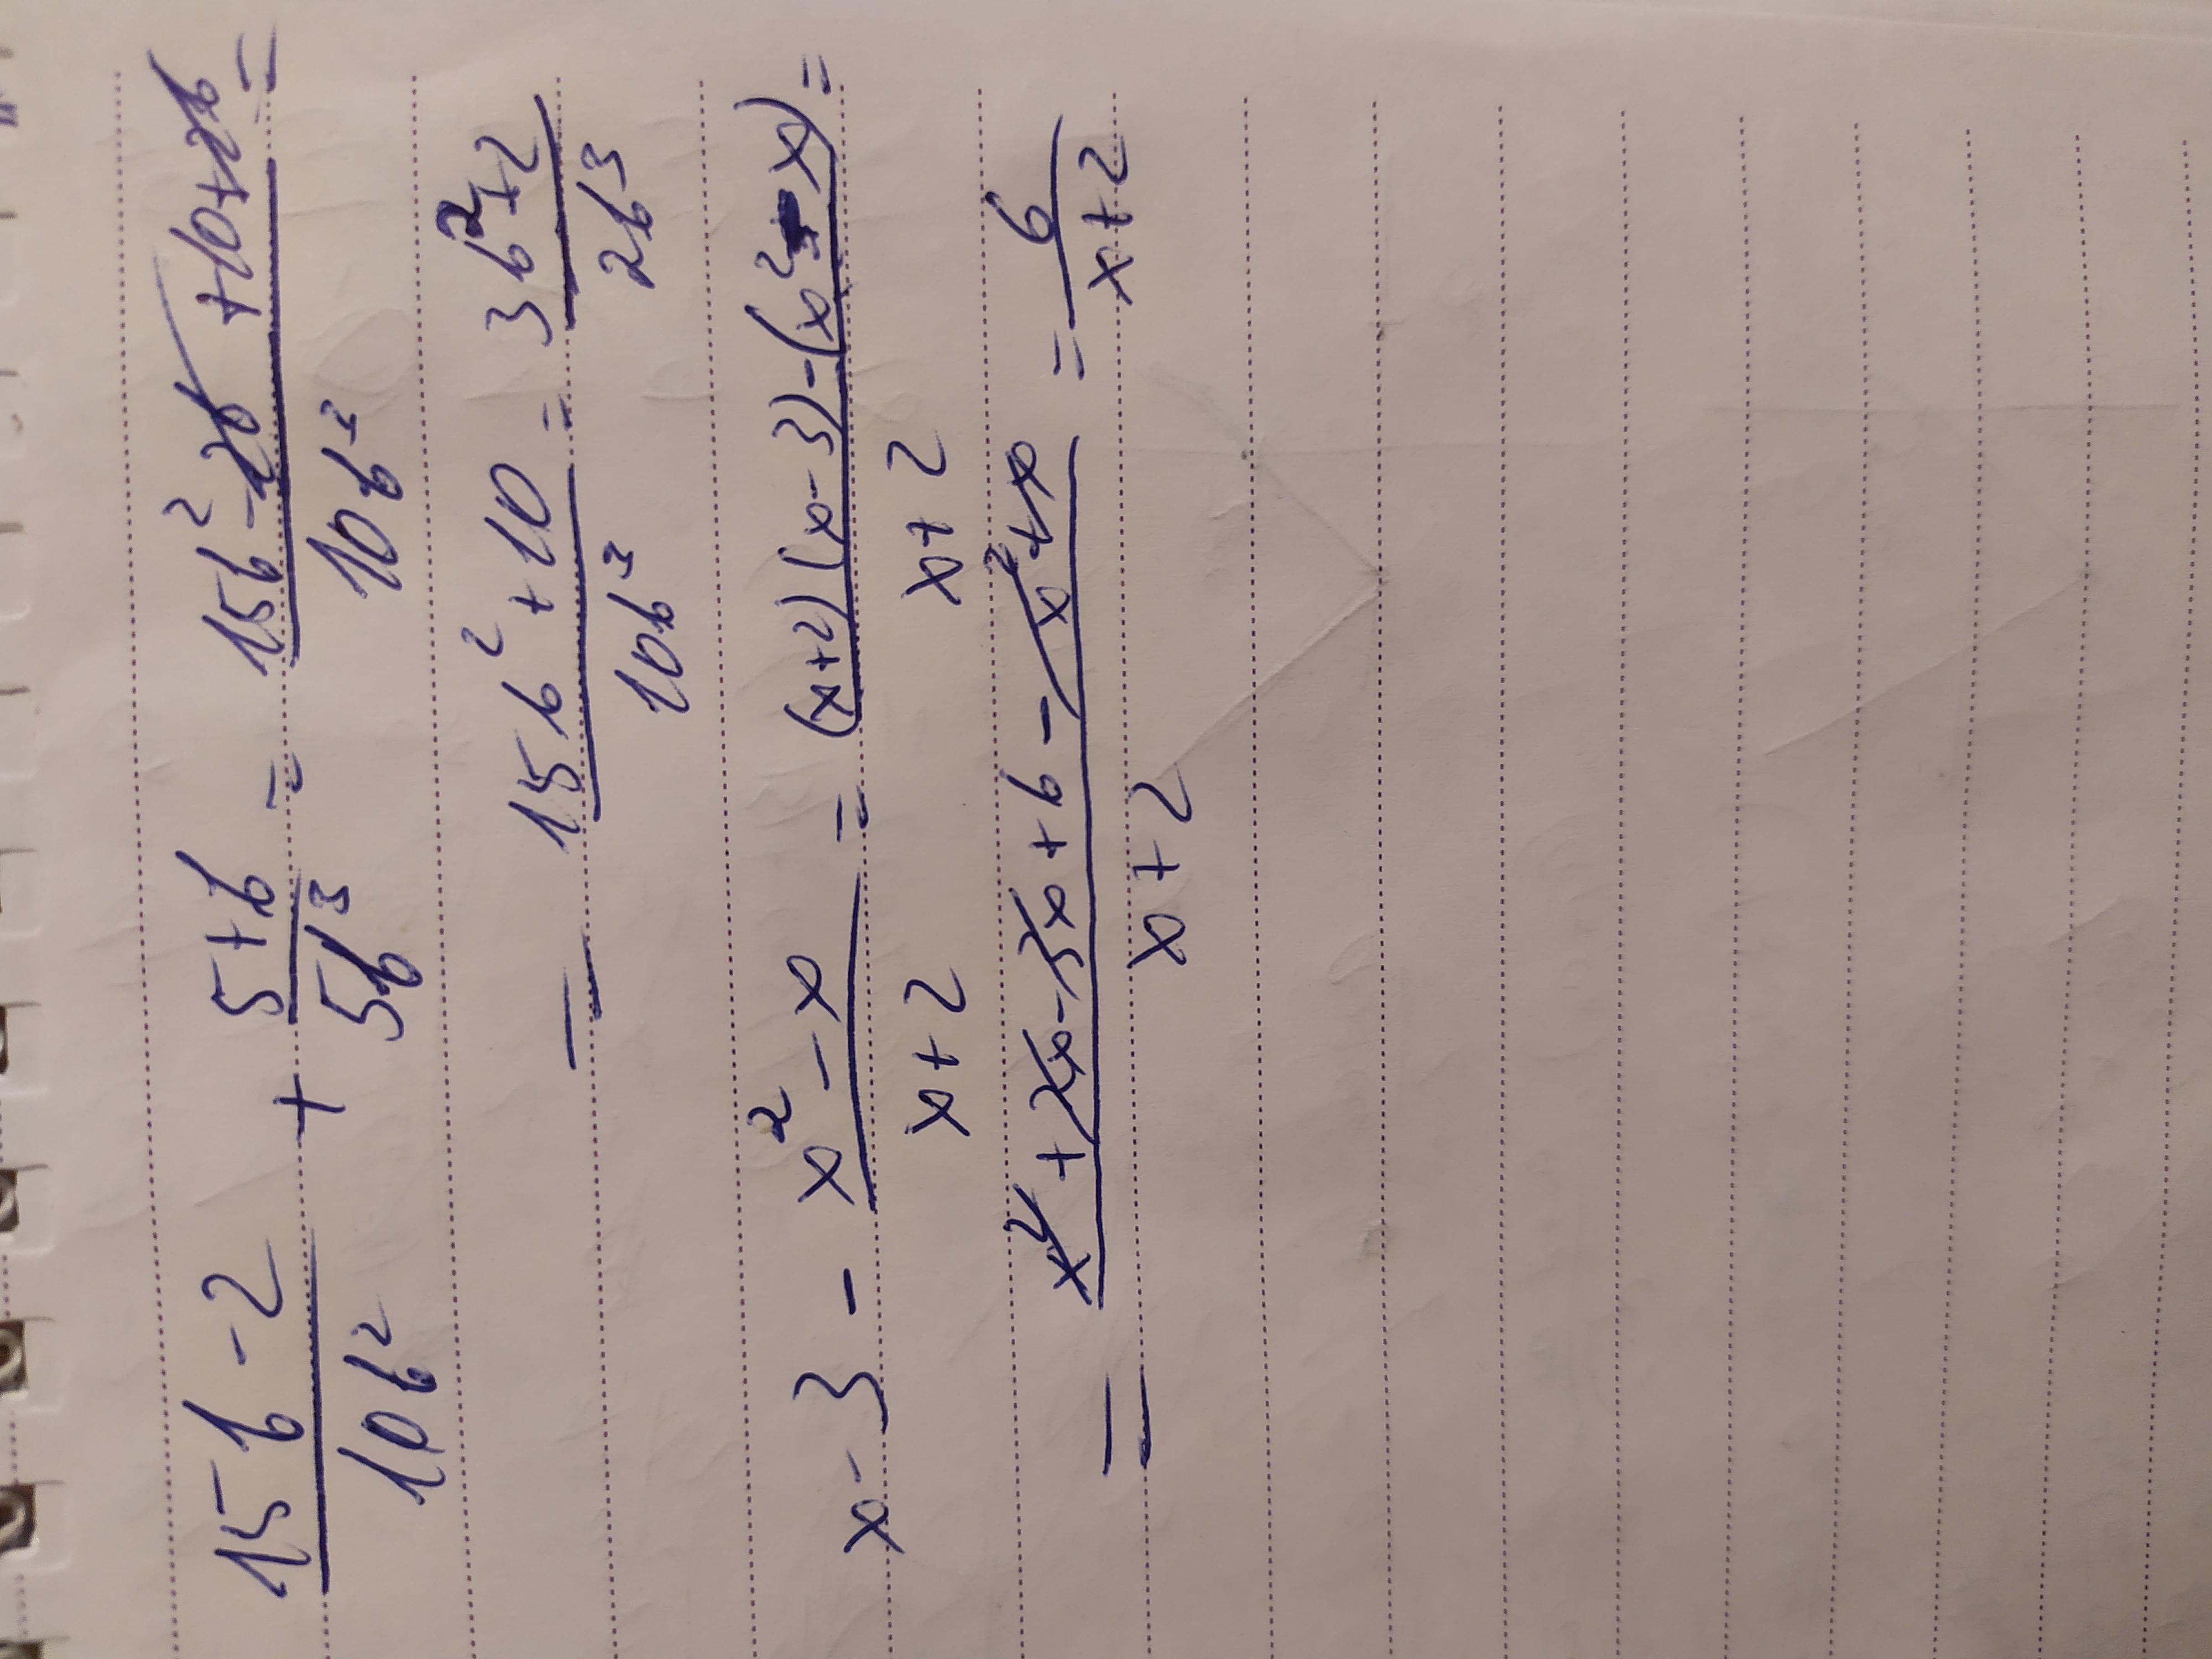 (15b - 2)/(10b²) + (5+b)/(5b³) = (15b² - 2b + 10 + 2b)/(10b³) =
= (15b² + 10)/(10b³) = (3b² + 2)/(2b³)
x - 3 - (x² - x)/(x + 2) = ((x+2)(x-3) - (x² - x))/(x + 2) =
= (x² + 2x - 3x + 6 - x² + x)/(x + 2) = 6/(x+2)